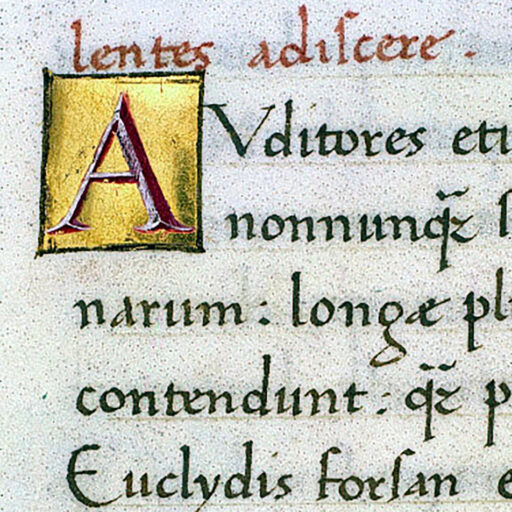 lentes adiſcere.
AVditores eti
nonnunqꝫ
narum: longæ pl
contendunt: qꝫ p
Euclydis forſan e